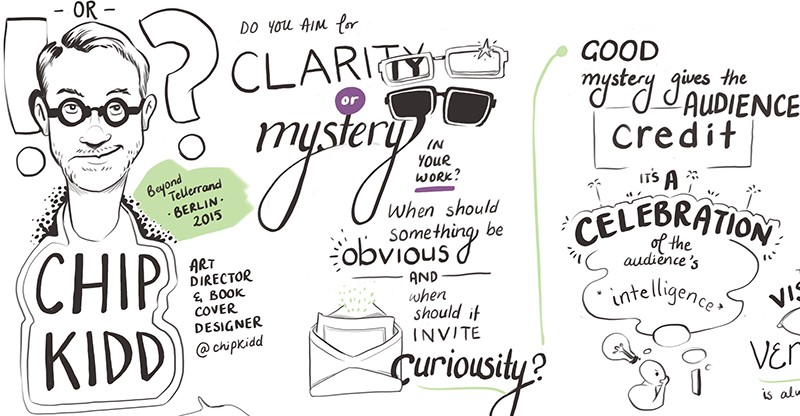 ! - OR - ?
CHIP
KIDD
Beyond
Tellerrand
· BERLIN ·
2015
ART
DIRECTOR
& BOOK
COVER
DESIGNER
@chipkidd
DO YOU AIM for
CLARITY
or
mystery
IN
YOUR
WORK?
When should
something be
obvious
AND
when
should it
INVITE
curiousity?
GOOD
mystery gives the
AUDIENCE
credit
IT'S A
CELEBRATION
of the
audience's
intelligence
VIS
VER
is alw